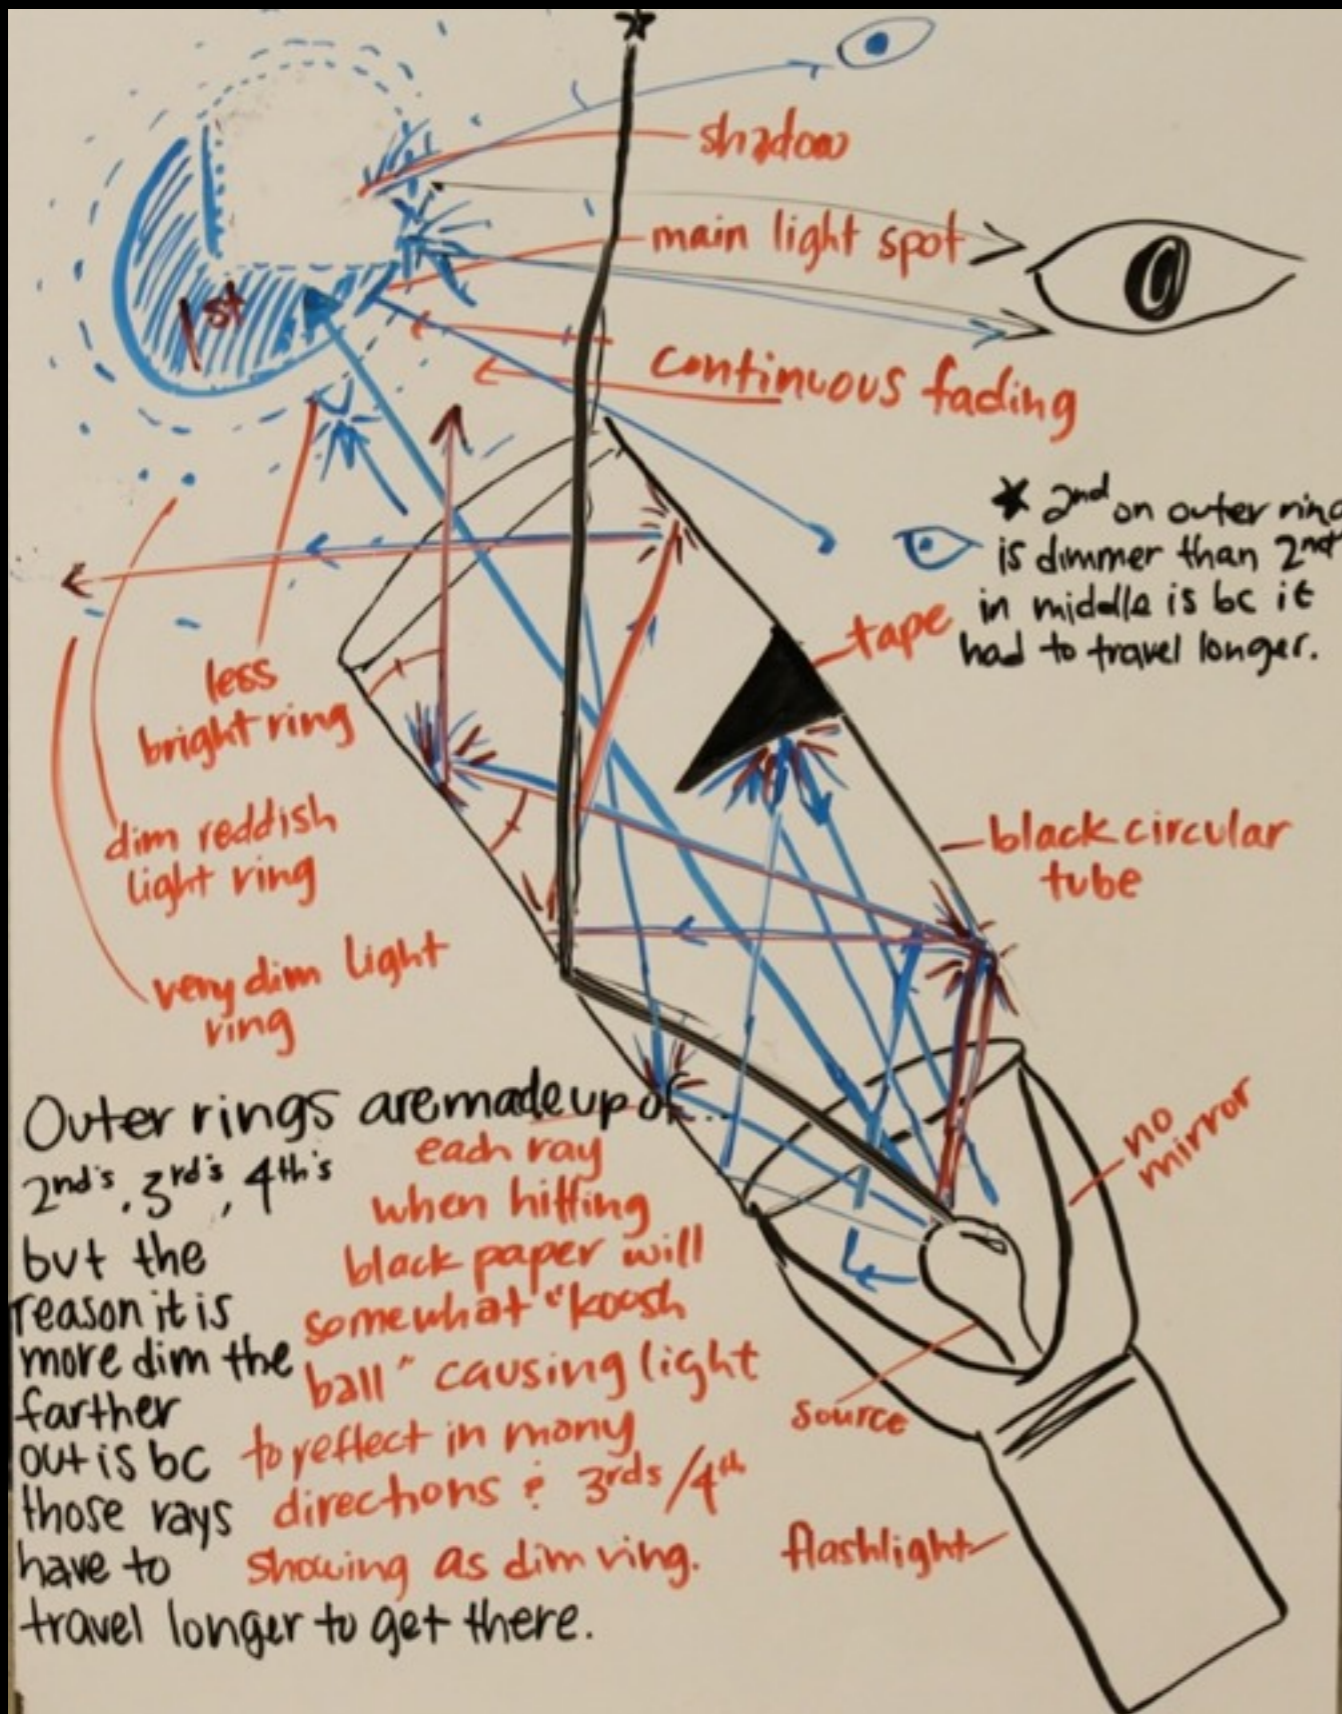 shadow
main light spot
1st
continuous fading
★ 2nd on outer ring
is dimmer than 2nd
in middle is bc it
had to travel longer.
tape
less
bright ring
dim reddish
light ring
black circular
tube
very dim light
ring
no
mirror
Outer rings are made up of...
2nd's, 3rd's, 4th's
but the
reason it is
more dim the
farther
out is bc
those rays
have to
travel longer to get there.
each ray
when hitting
black paper will
somewhat "koosh
ball" causing light
to reflect in many
directions & 3rds/4th
showing as dim ring.
source
flashlight